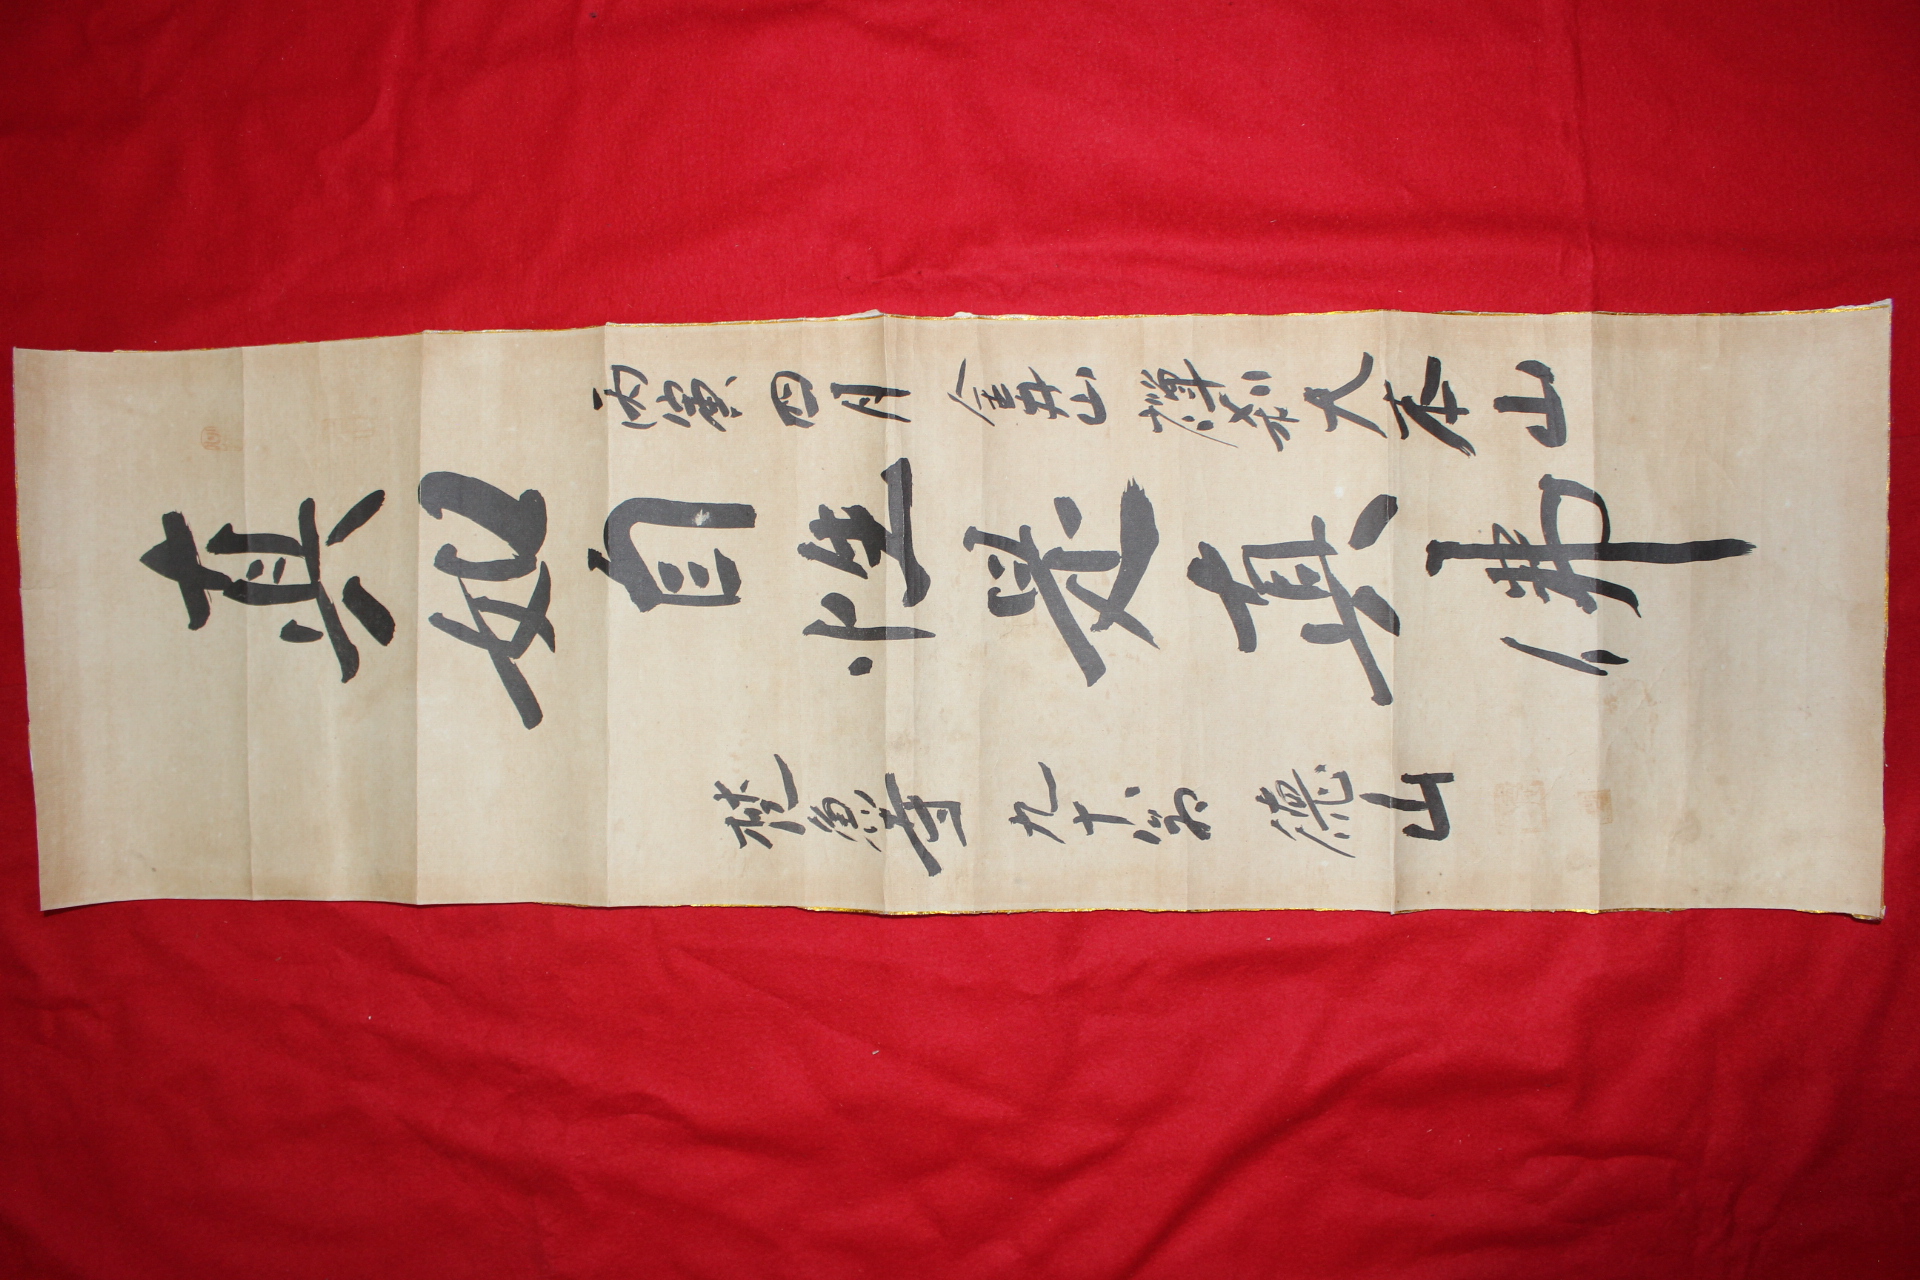 丙寅四月金井山禪刹大本山
真如自性是真佛
梵魚寺九十翁德山